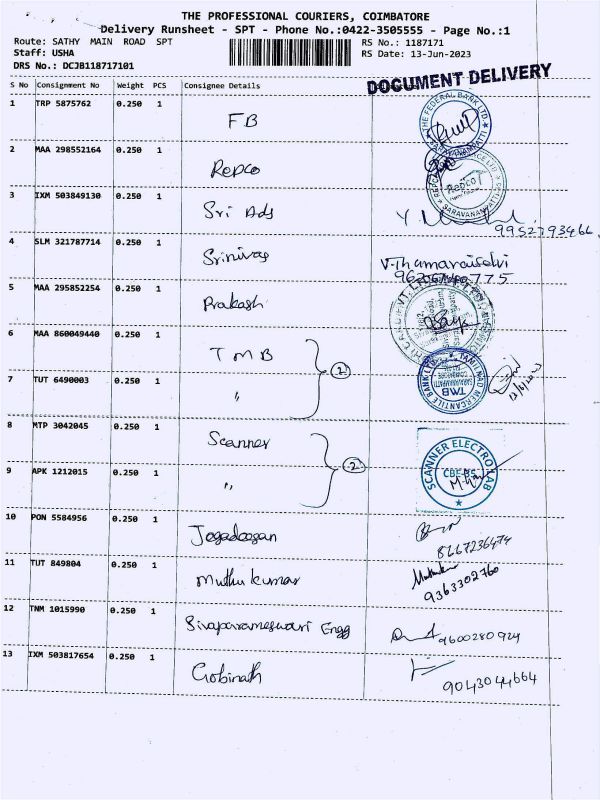 THE PROFESSIONAL COURIERS, COIMBATORE
Delivery Runsheet - SPT - Phone No.:0422-3505555 - Page No.:1
Route: SATHY MAIN ROAD SPT RS No.: 1187171
Staff: USHA RS Date: 13-Jun-2023
DRS No.: DCJB118717101
DOCUMENT DELIVERY
S No Consignment No Weight PCS Consignee Details
1 TRP 5875762 0.250 1 FB
THE FEDERAL BANK LTD. SARAVANAMPATTI
2 MAA 298552164 0.250 1 Repco
Repco SARAVANAMPATTI
3 IXM 503849130 0.250 1 Sri Ads 9952793466
4 SLM 321787714 0.250 1 Srinivas V.Thamaraiselvi
5 MAA 295852254 0.250 1 Prakash
6 MAA 860049440 0.250 1 TMB 2
TAMILNAD MERCANTILE BANK LTD. TMB
7 TUT 6490003 0.250 1 "
8 MTP 3042045 0.250 1 Scanner 2
SCANNER ELECTRO LAB CBE-35
9 APK 1212015 0.250 1 "
10 PON 5584956 0.250 1 Jagadeesan 8667236474
11 TUT 849804 0.250 1 Muthukumar 9363302760
12 TNM 1015990 0.250 1 Sivaparameswari Engg 9600280924
13 IXM 503817654 0.250 1 Gobinath 9043044664